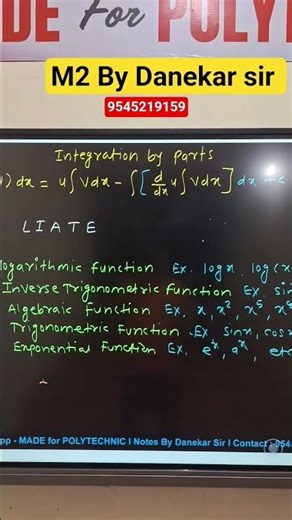 ADE For POLY
M2 By Danekar sir
9545219159
Integration by parts
) dx = u∫vdx - ∫[d/dx u∫vdx] dx + c
L I A T E
logarithmic function Ex. logx, log(x
Inverse Trigonometric function Ex. sin
Algebraic Function Ex. x, x², x⁵, x
Trigonometric Function Ex. sinx, cos
Exponential Function Ex. eˣ, aˣ, etc
pp - MADE for POLYTECHNIC I Notes By Danekar Sir I Contact : 954